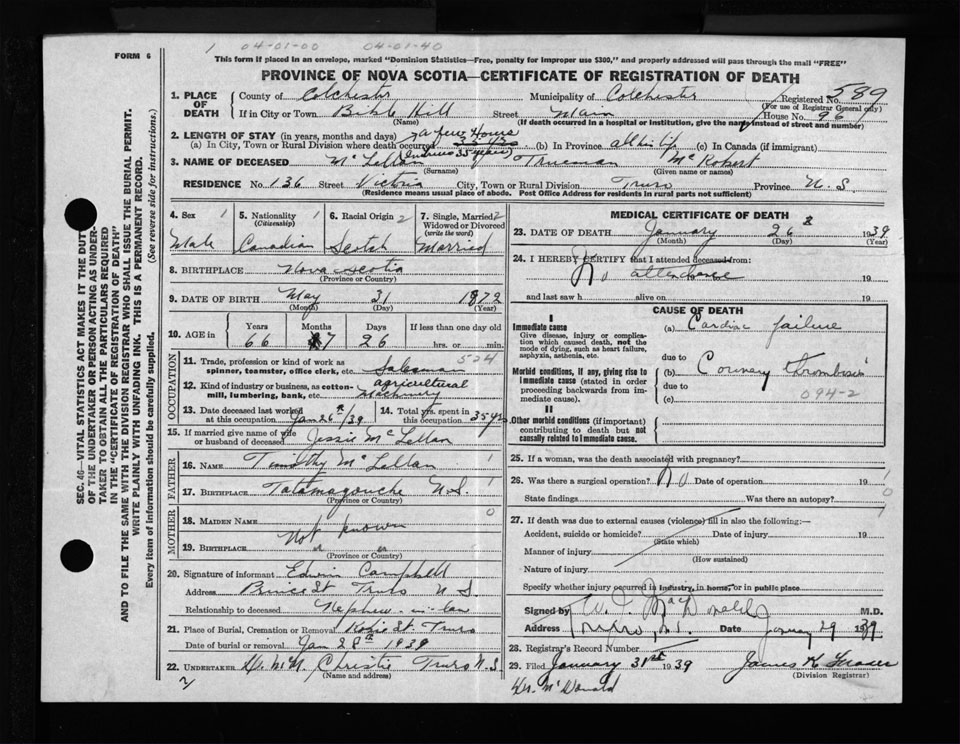 1 04-01-00 04-01-40
FORM 6
This form if placed in an envelope, marked "Dominion Statistics—Free, penalty for improper use $300," and properly addressed will pass through the mail "FREE"
PROVINCE OF NOVA SCOTIA—CERTIFICATE OF REGISTRATION OF DEATH
1. PLACE OF DEATH County of Colchester Municipality of Colchester Registered No. 589
(For use of Registrar General only)
If in City or Town Bible Hill Street Main House No. 96
(Name) (If death occurred in a hospital or institution, give the name instead of street and number)
2. LENGTH OF STAY (in years, months and days) a few Hours
(a) In City, Town or Rural Division where death occurred (b) In Province all his life (c) In Canada (if immigrant)
35 years)
3. NAME OF DECEASED McLellan Trueman McRobert
(Surname) (Given name or names)
RESIDENCE No. 136 Street Victoria City, Town or Rural Division Truro Province N.S.
(Residence means usual place of abode. Post Office Address for residents in rural parts not sufficient)
4. Sex 1 Male
5. Nationality 1 (Citizenship) Canadian
6. Racial Origin 2 Scotch
7. Single, Married 2 Widowed or Divorced (write the word) Married
8. BIRTHPLACE Nova Scotia
(Province or Country)
9. DATE OF BIRTH May 31 1872
(Month) (Day) (Year)
10. AGE in Years 66 Months 7 Days 26 If less than one day old hrs. or min.
OCCUPATION
11. Trade, profession or kind of work as spinner, teamster, office clerk, etc. Salesman 524
12. Kind of industry or business, as cotton-mill, lumbering, bank, etc. agricultural Machinery
13. Date deceased last worked at this occupation Jan 26th/39
14. Total yrs. spent in this occupation 35 yrs
15. If married give name of wife or husband of deceased Jessie McLellan
FATHER
16. NAME Timothy McLellan 1
17. BIRTHPLACE Tatamagouche N.S. 1
(Province or Country)
MOTHER
18. MAIDEN NAME Not known 0
19. BIRTHPLACE
(Province or Country)
20. Signature of informant Edwin Campbell
Address Prince St Truro N S
Relationship to deceased Nephew-in-law
21. Place of Burial, Cremation or Removal Robie St. Truro
Date of burial or removal Jan 28th 1939
22. UNDERTAKER Christie Truro N.S
(Name and address)
MEDICAL CERTIFICATE OF DEATH
23. DATE OF DEATH January 26 8 1939
(Month) (Day) (Year)
24. I HEREBY CERTIFY that I attended deceased from:
No attendance 19
and last saw h alive on 19
CAUSE OF DEATH
I
Immediate cause
Give disease, injury or complication which caused death, not the mode of dying, such as heart failure, asphyxia, asthenia, etc.
(a) Cardiac failure
due to
Morbid conditions, if any, giving rise to immediate cause (stated in order proceeding backwards from immediate cause).
(b) Coronary thrombosis
due to 094-2
(c)
II
Other morbid conditions (if important) contributing to death but not causally related to immediate cause.
25. If a woman, was the death associated with pregnancy?
26. Was there a surgical operation? No Date of operation 19
State findings Was there an autopsy?
27. If death was due to external causes (violence) fill in also the following:—
Accident, suicide or homicide? Date of injury 19
(State which)
Manner of injury
(How sustained)
Nature of injury
Specify whether injury occurred in industry, in home, or in public place
Signed by MacDonald M.D.
Address Truro, N.S. Date January 29 1939
28. Registrar's Record Number
29. Filed January 31st 1939 James K Fraser
(Division Registrar)
Dr. McDonald
SEC. 46—VITAL STATISTICS ACT MAKES IT THE DUTY
OF THE UNDERTAKER OR PERSON ACTING AS UNDER-
TAKER TO OBTAIN ALL THE PARTICULARS REQUIRED
IN THE "CERTIFICATE OF REGISTRATION OF DEATH"
AND TO FILE THE SAME WITH THE DIVISION REGISTRAR WHO SHALL ISSUE THE BURIAL PERMIT.
WRITE PLAINLY WITH UNFADING INK. THIS IS A PERMANENT RECORD.
Every item of information should be carefully supplied. (See reverse side for instructions.)